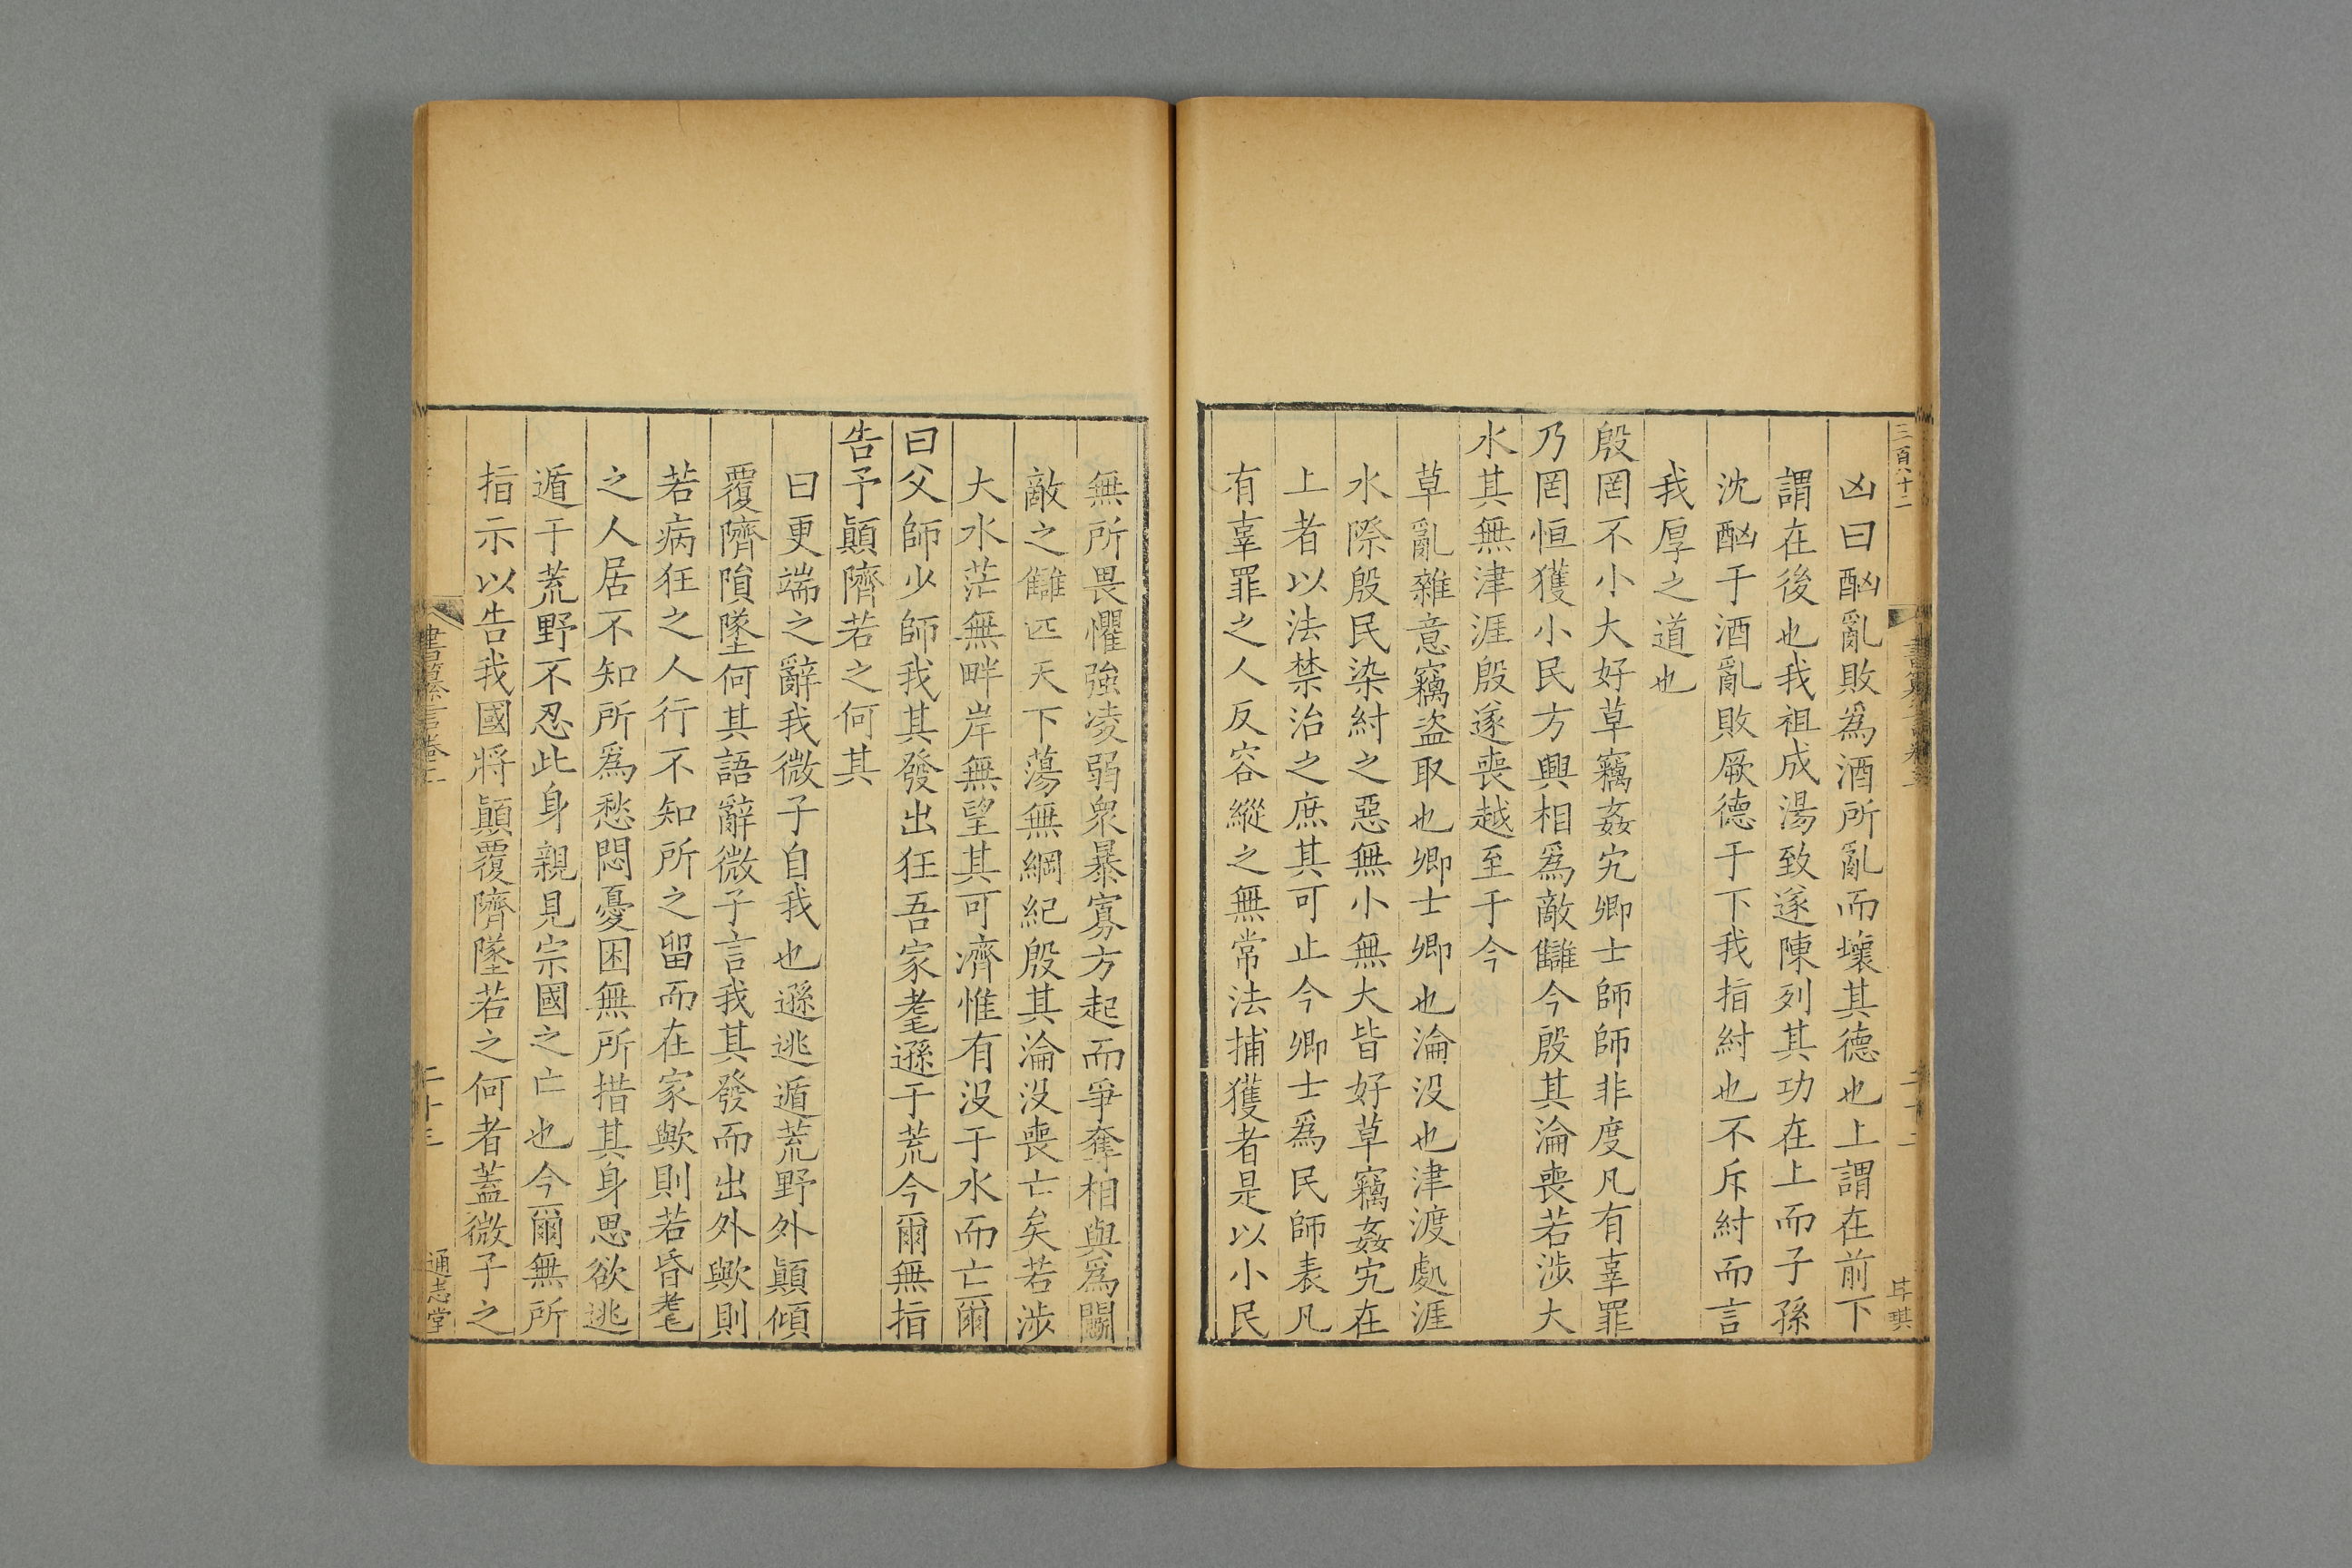 三百八十二
凶曰酗亂敗爲酒所亂而壞其德也上謂在前下
謂在後也我祖成湯致遂陳列其功在上而子孫
沈酗于酒亂敗厥德于下我指紂也不斥紂而言
我厚之道也
殷罔不小大好草竊姦宄卿士師師非度凡有辜罪
乃罔恒獲小民方興相爲敵讎今殷其淪喪若涉大
水其無津涯殷遂喪越至于今
草亂雜意竊盜取也卿士卿也淪没也津渡處涯
水際殷民染紂之惡無小無大皆好草竊姦宄在
上者以法禁治之庶其可止今卿士爲民師表凡
有辜罪之人反容縱之無常法捕獲者是以小民
無所畏懼強凌弱衆暴寡方起而爭奪相與爲鬭
敵之讎匹天下蕩無綱紀殷其淪没喪亡矣若涉
大水茫無畔岸無望其可濟惟有没于水而亡爾
曰父師少師我其發出狂吾家耄遜于荒今爾無指
告予顚隮若之何其
曰更端之辭我微子自我也遜逃遁荒野外顚傾
覆隮隕墜何其語辭微子言我其發而出外歟則
若病狂之人行不知所之留而在家歟則若昏耄
之人居不知所爲愁悶憂困無所措其身思欲逃
遁于荒野不忍此身親見宗國之亡也今爾無所
指示以告我國將顚覆隮墜若之何者蓋微子之
通志堂